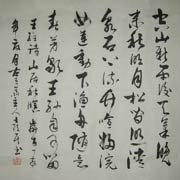 空山新雨後天氣晚
來秋明月松間照清
泉石上流竹喧歸浣
女蓮動下漁舟隨意
春芳歇王孫自可留
王維詩山居秋暝